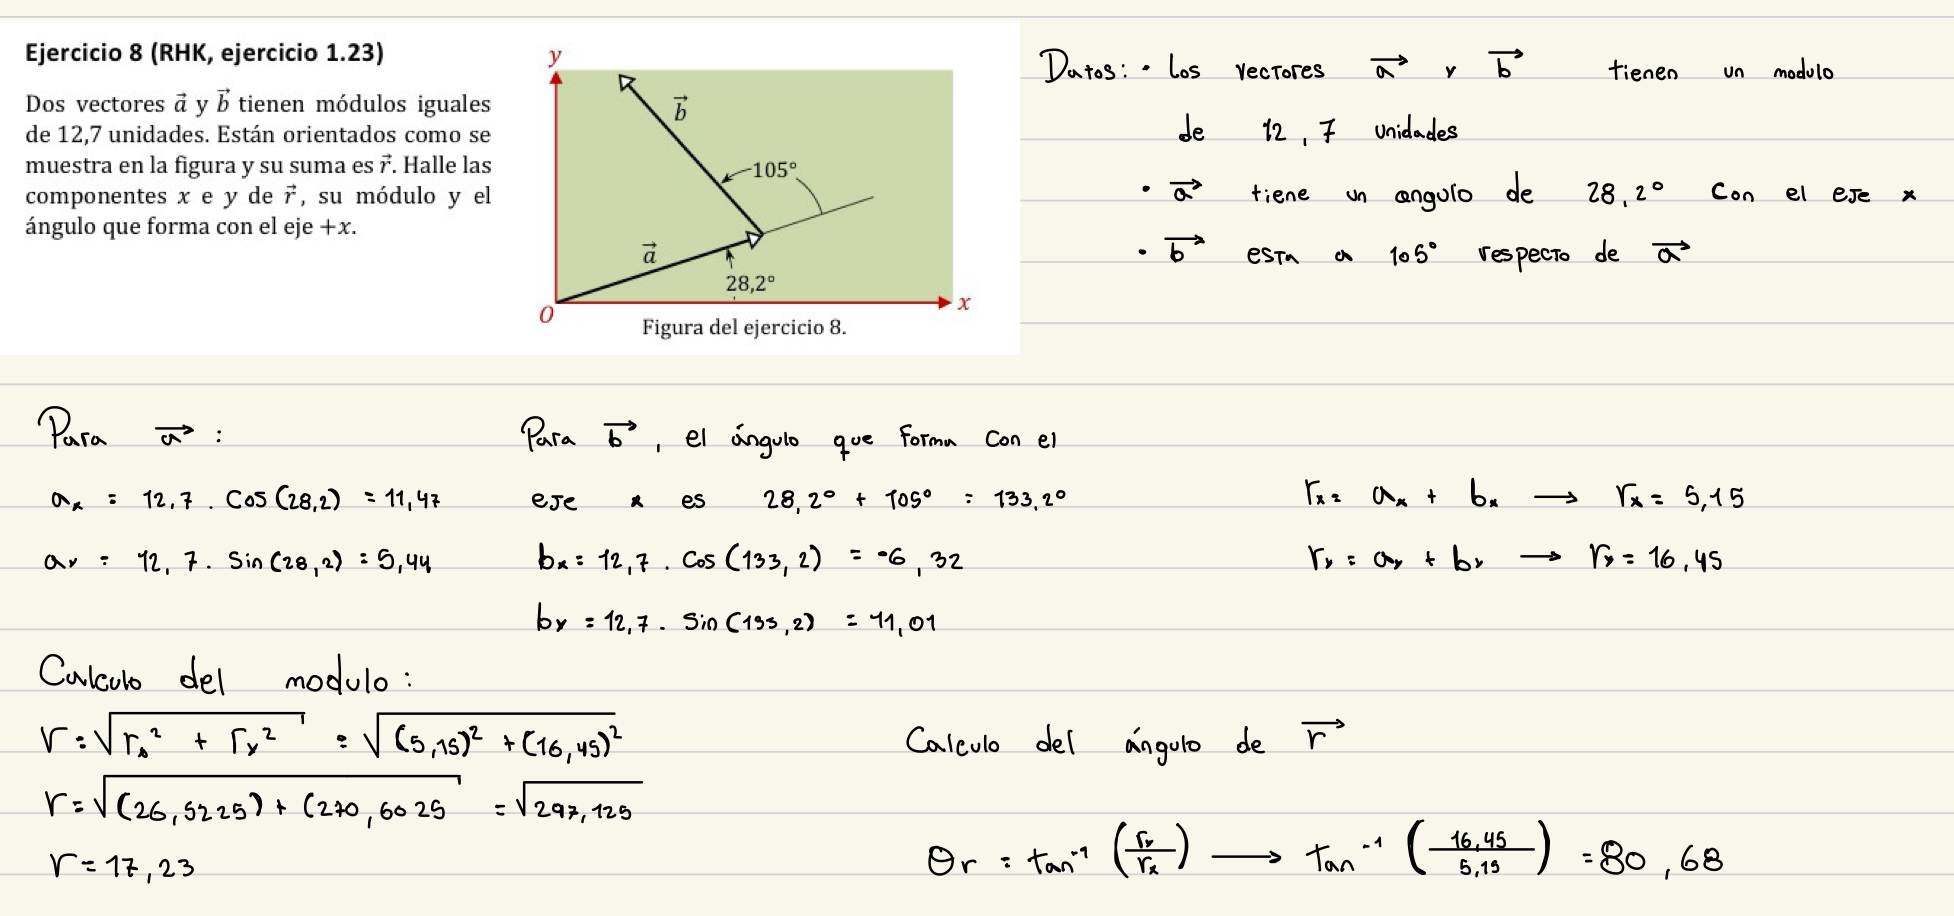 Ejercicio 8 (RHK, ejercicio 1.23)
Dos vectores a⃗ y b⃗ tienen módulos iguales
de 12,7 unidades. Están orientados como se
muestra en la figura y su suma es r⃗. Halle las
componentes x e y de r⃗, su módulo y el
ángulo que forma con el eje +x.
y
b⃗
105°
a⃗
28,2°
O
x
Figura del ejercicio 8.
Datos: • Los vectores a⃗ y b⃗ tienen un modulo
de 12,7 unidades
• a⃗ tiene un angulo de 28,2° con el eje x
• b⃗ esta a 105° respecto de a⃗
Para a⃗ :
ax = 12,7 . Cos (28,2) = 11,47
ay = 12,7 . Sin (28,2) = 5,44
Para b⃗, el ángulo que forma con el
eje x es 28,2° + 105° = 133,2°
bx = 12,7 . Cos (133,2) = -6,32
by = 12,7 . Sin (133,2) = 11,01
rx = ax + bx → rx = 5,15
ry = ay + by → ry = 16,45
Calculo del modulo :
r = √rx² + ry² = √(5,15)² + (16,45)²
r = √(26,5225) + (270,6025 = √297,125
r = 17,23
Calculo del ángulo de r⃗
θr = tan⁻¹ (ry/rx) → tan⁻¹ (16,45/5,15) = 80,68